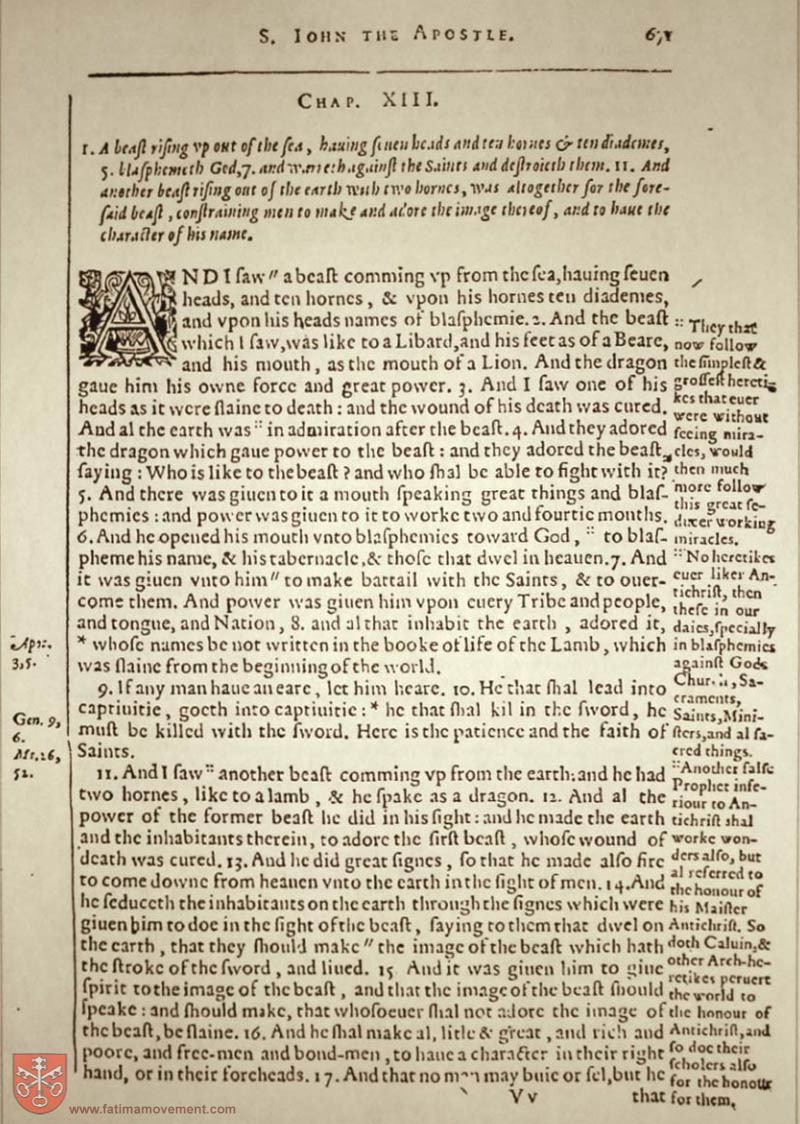 S. IOHN THE APOSTLE.
CHAP. XIII.
1. A beaſt riſing vp out of the ſea, hauing ſeuen heads and ten hornes & ten diademes,
5. blaſphemeth God, 7. and warreth againſt the Saints and deſtroieth them. 11. And
another beaſt riſing out of the earth with two hornes, was altogether for the fore-
ſaid beaſt, conſtraining men to make and adore the image thereof, and to haue the
character of his name.
AND I ſaw " a beaſt comming vp from the ſea, hauing ſeuen
heads, and ten hornes, & vpon his hornes ten diademes,
and vpon his heads names of blaſphemie. 2. And the beaſt
which I ſaw, was like to a Libard, and his feet as of a Beare,
and his mouth, as the mouth of a Lion. And the dragon
gaue him his owne force and great power. 3. And I ſaw one of his
heads as it were ſlaine to death: and the wound of his death was cured.
And al the earth was :: in admiration after the beaſt. 4. And they adored
the dragon which gaue power to the beaſt: and they adored the beaſt,
ſaying: Who is like to the beaſt? and who ſhal be able to fight with it?
5. And there was giuen to it a mouth ſpeaking great things and blaſ-
phemies: and power was giuen to it to worke two and fourtie months.
6. And he opened his mouth vnto blaſphemies toward God, :: to blaſ-
pheme his name, & his tabernacle, & thoſe that dwel in heauen. 7. And
it was giuen vnto him " to make battail with the Saints, & to ouer-
come them. And power was giuen him vpon euery Tribe and people,
and tongue, and Nation, 8. and al that inhabit the earth, adored it,
* whoſe names be not written in the booke of life of the Lamb, which
was ſlaine from the beginning of the world.
9. If any man haue an eare, let him heare. 10. He that ſhal lead into
captiuitie, goeth into captiuitie: * he that ſhal kil in the ſword, he
muſt be killed with the ſword. Here is the patience and the faith of
Saints.
11. And I ſaw :: another beaſt comming vp from the earth: and he had
two hornes, like to a lamb, & he ſpake as a dragon. 12. And al the
power of the former beaſt he did in his ſight: and he made the earth
and the inhabitants therein, to adore the firſt beaſt, whoſe wound of
death was cured. 13. And he did great ſignes, ſo that he made alſo fire
to come downe from heauen vnto the earth in the ſight of men. 14. And
he ſeduceth the inhabitants on the earth through the ſignes which were
giuen him to doe in the ſight of the beaſt, ſaying to them that dwel on
the earth, that they ſhould make " the image of the beaſt which hath
the ſtroke of the ſword, and liued. 15 And it was giuen him to giue
ſpirit to the image of the beaſt, and that the image of the beaſt ſhould
ſpeake: and ſhould make, that whoſoeuer ſhal not adore the image of
the beaſt, be ſlaine. 16. And he ſhal make al, litle & great, and rich and
poore, and free-men and bond-men, to haue a character in their right
hand, or in their foreheads. 17. And that no man may buie or ſel, but he
V v that
:: They that
now follow
the ſimpleſt &
groſſeſt hereti-
kes that euer
were without
ſeeing mira-
cles, would
then much
more follow
this great ſe-
ducer working
miracles.
:: No heretikes
euer liker An-
tichriſt, then
theſe in our
daies, ſpecially
in blaſphemies
againſt Gods
Church, Sa-
craments,
Saints, Mini-
ſters, and al ſa-
cred things.
:: Another falſe
Prophet infe-
riour to An-
tichriſt ſhal
worke won-
ders alſo, but
al referred to
the honour of
his Maiſter
Antichriſt. So
doth Caluin, &
other Arch-he-
retikes peruert
the world to
the honour of
Antichriſt, and
ſo doe their
ſcholers alſo
for the honour
for them,
Apoc.
3,5.
Gen. 9,
6.
Mt. 26,
52.
www.fatimamovement.com